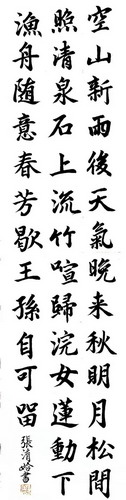 空山新雨後天氣晚来秋明月松間
照清泉石上流竹喧歸浣女蓮動下
漁舟随意春芳歇王孫自可留
張清 書